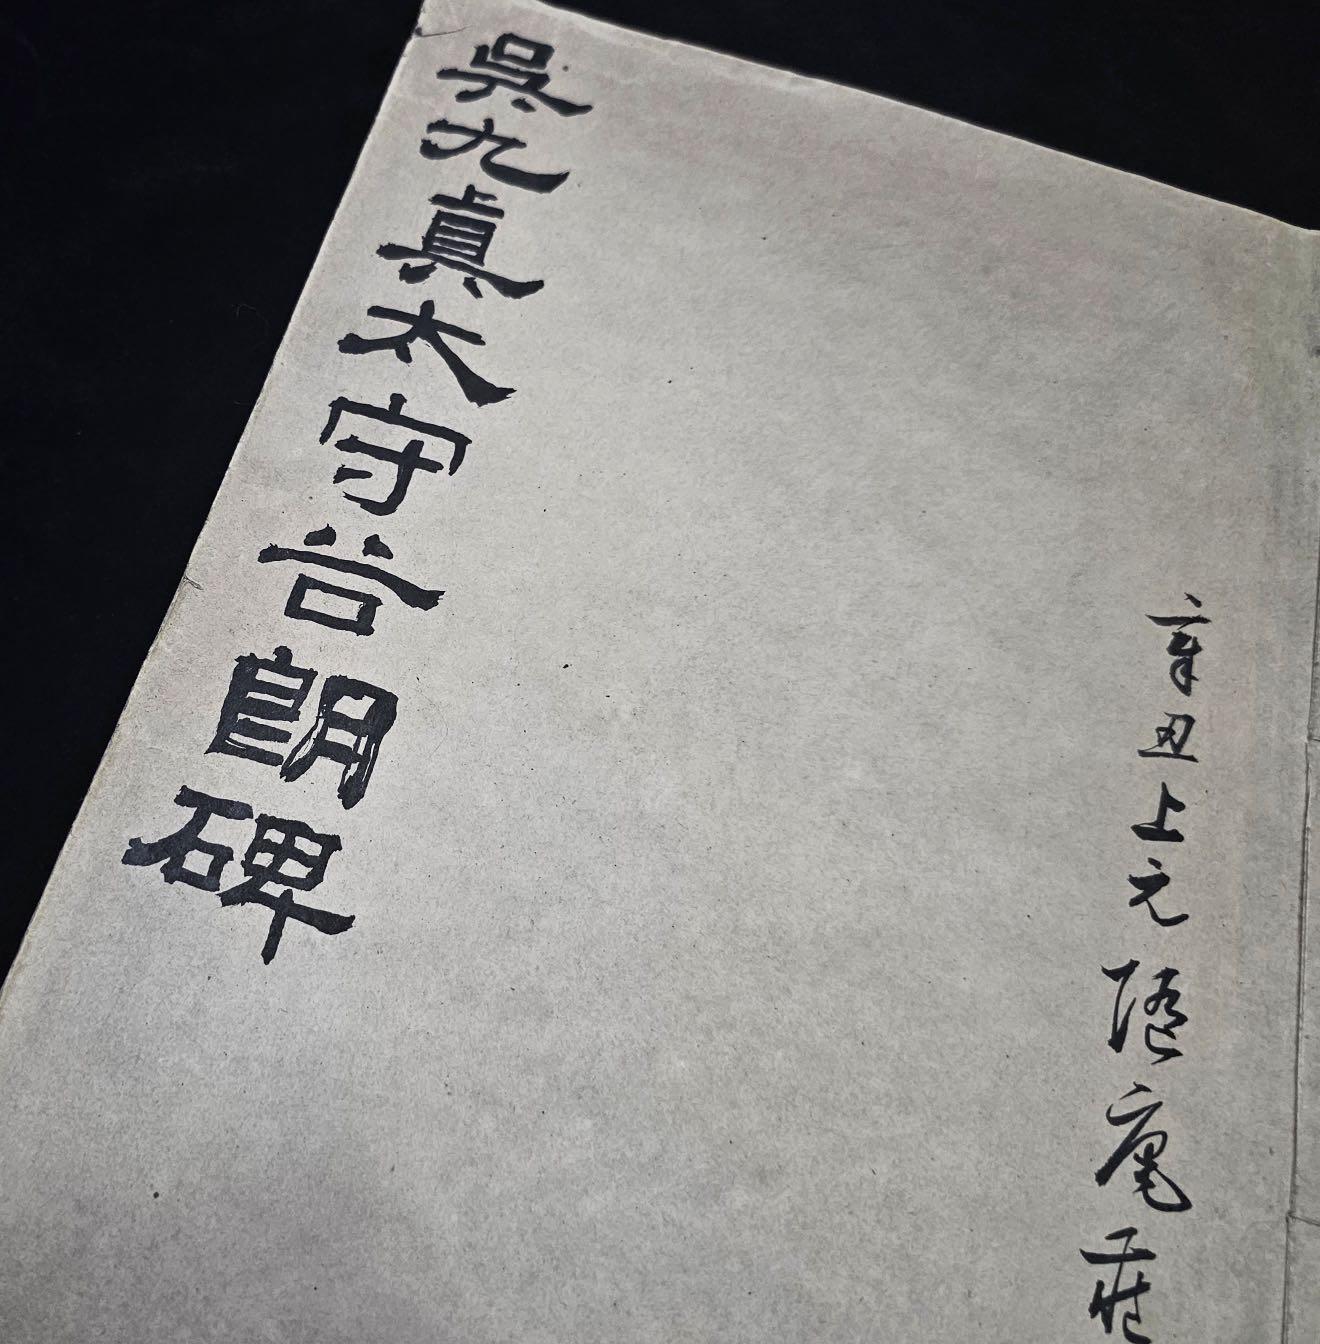 辛丑上元
吳九真太守谷朗碑